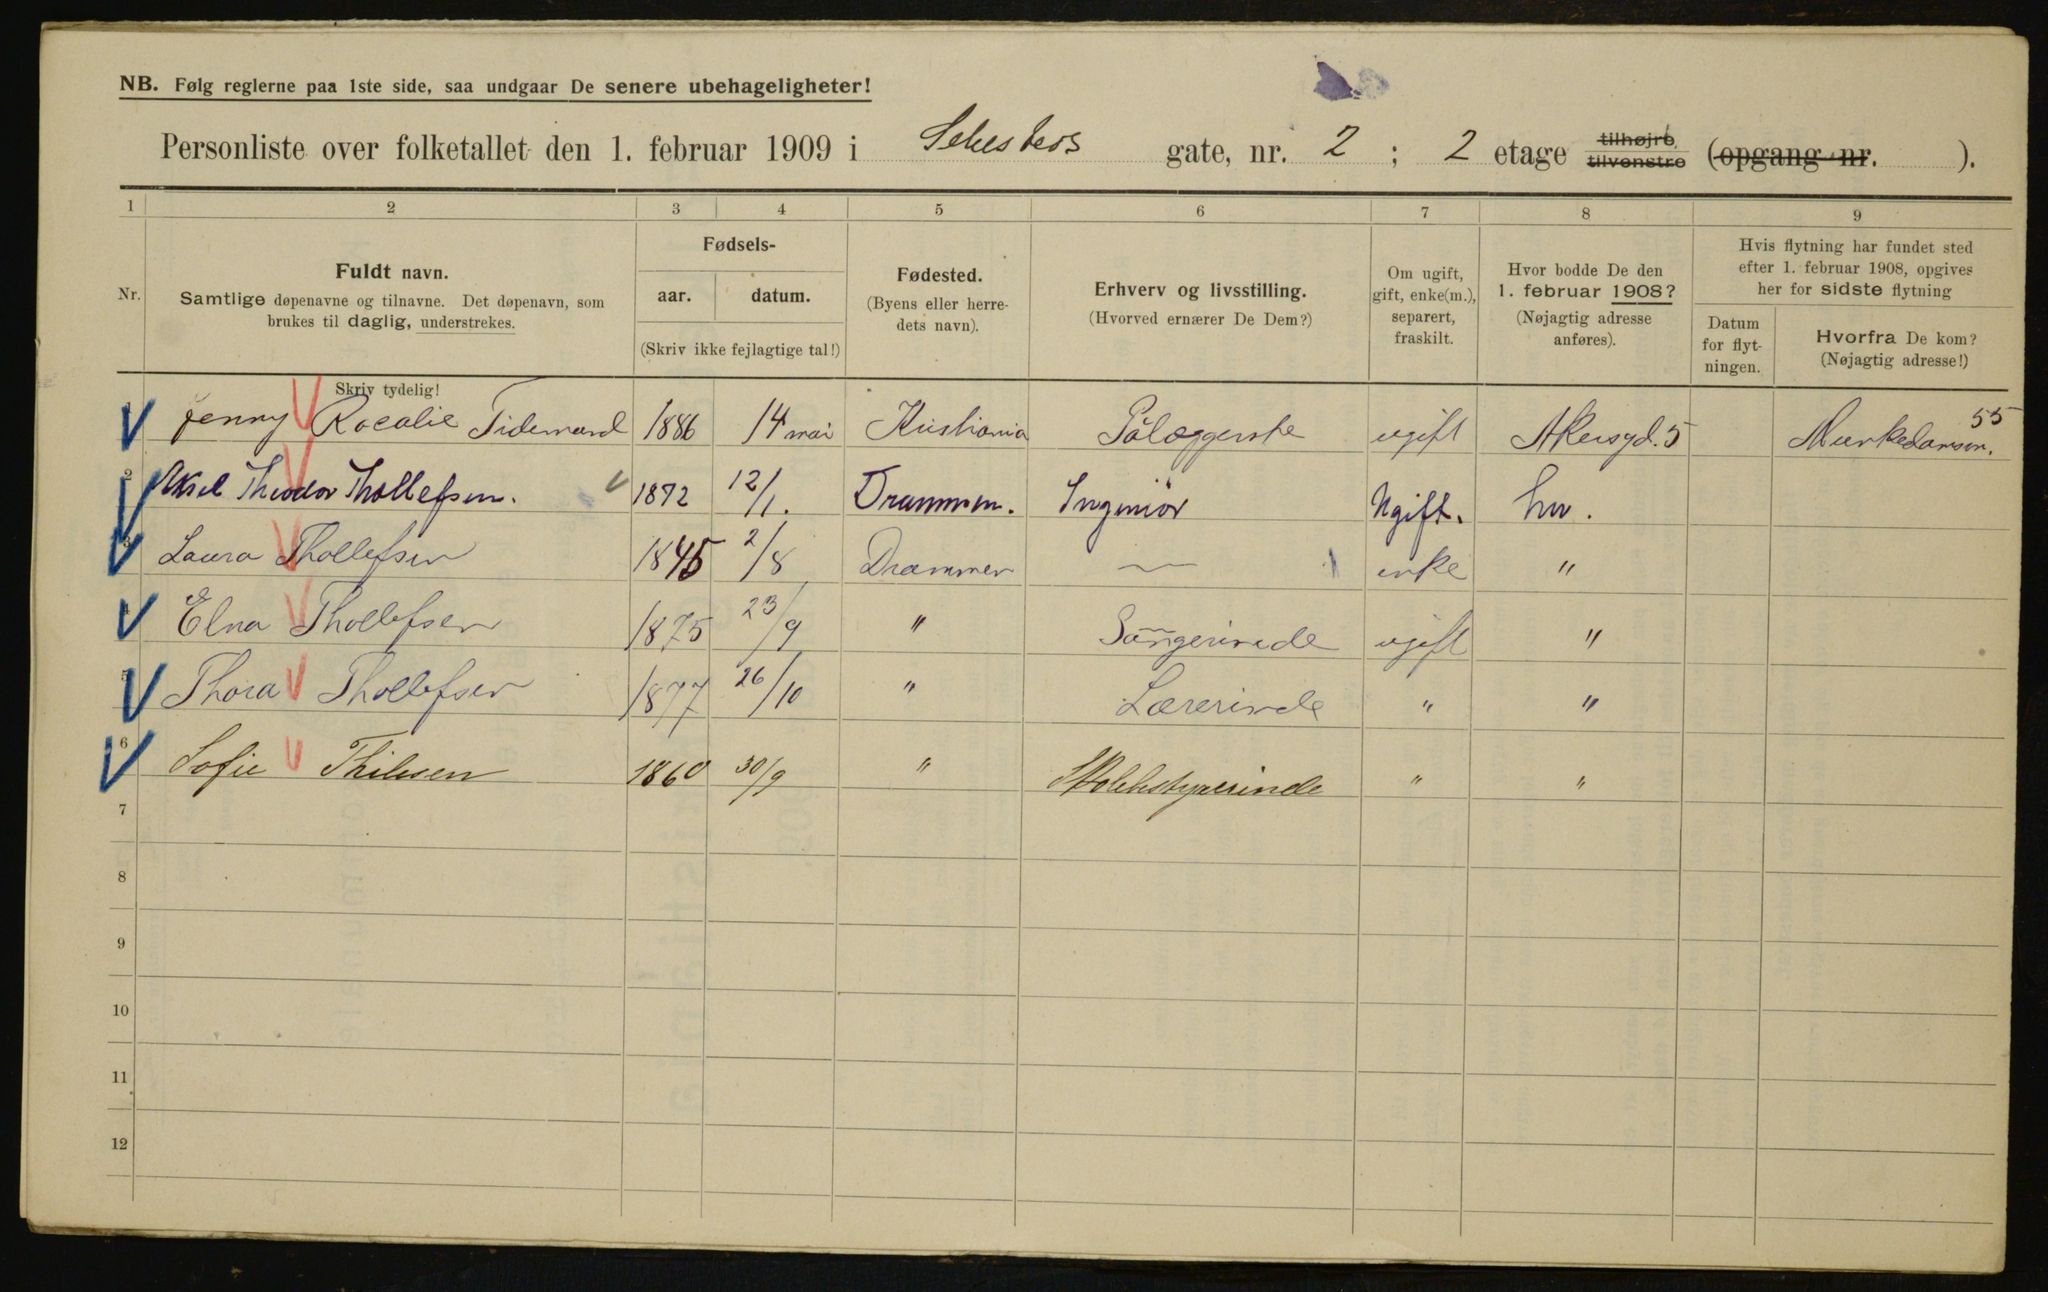 NB. Følg reglerne paa 1ste side, saa undgaar De senere ubehageligheter!
Personliste over folketallet den 1. februar 1909 i Schesteds gate, nr. 2 ; 2 etage tilhøjre tilvenstre (opgang nr. ).
1 2 3 4 5 6 7 8 9
Nr.
Fuldt navn.
Samtlige døpenavne og tilnavne. Det døpenavn, som
brukes til daglig, understrekes.
Skriv tydelig!
Fødsels-
aar. datum.
(Skriv ikke fejlagtige tal!)
Fødested.
(Byens eller herre-
dets navn).
Erhverv og livsstilling.
(Hvorved ernærer De Dem?)
Om ugift,
gift, enke(m.),
separert,
fraskilt.
Hvor bodde De den
1. februar 1908?
(Nøjagtig adresse
anføres).
Hvis flytning har fundet sted
efter 1. februar 1908, opgives
her for sidste flytning
Datum
for flyt-
ningen.
Hvorfra De kom?
(Nøjagtig adresse!)
1 Jenny Rocalie Tidemand 1886 14 mai Kristiania Pålæggerske ugift Akersgd. 5 Munkedamsv. 55
2 Aksel Theodor Thollefsen. 1872 12/1. Drammen. Ingeniör Ugift. her.
3 Laura Thollefsen 1845 2/8 Drammen — enke "
4 Elna Thollefsen 1875 23/9 " Sangerinde ugift "
5 Thora Thollefsen 1877 26/10 " Lærerinde " "
6 Sofie Thilesen 1860 30/9 " Skolebestyrerinde " "
7
8
9
10
11
12